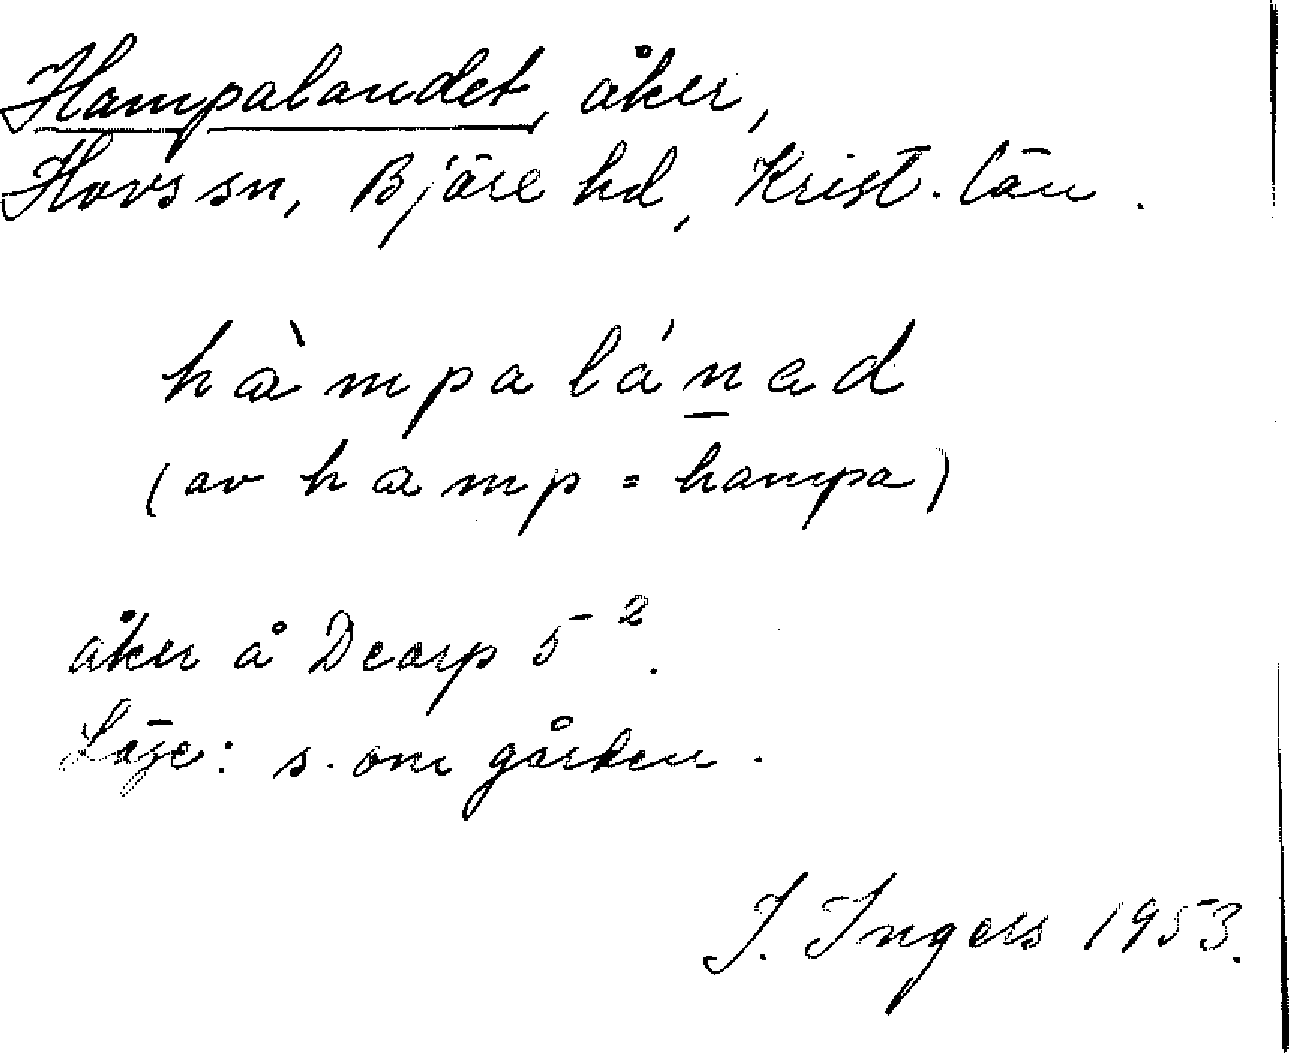 Hampalandet, åker,
Hovs sn, Bjäre hd, Krist. län.
hàmpalánad
(av hamp = hampa)
åker å Dearp 5².
Läge: s. om gården.
I. Ingers 1953.